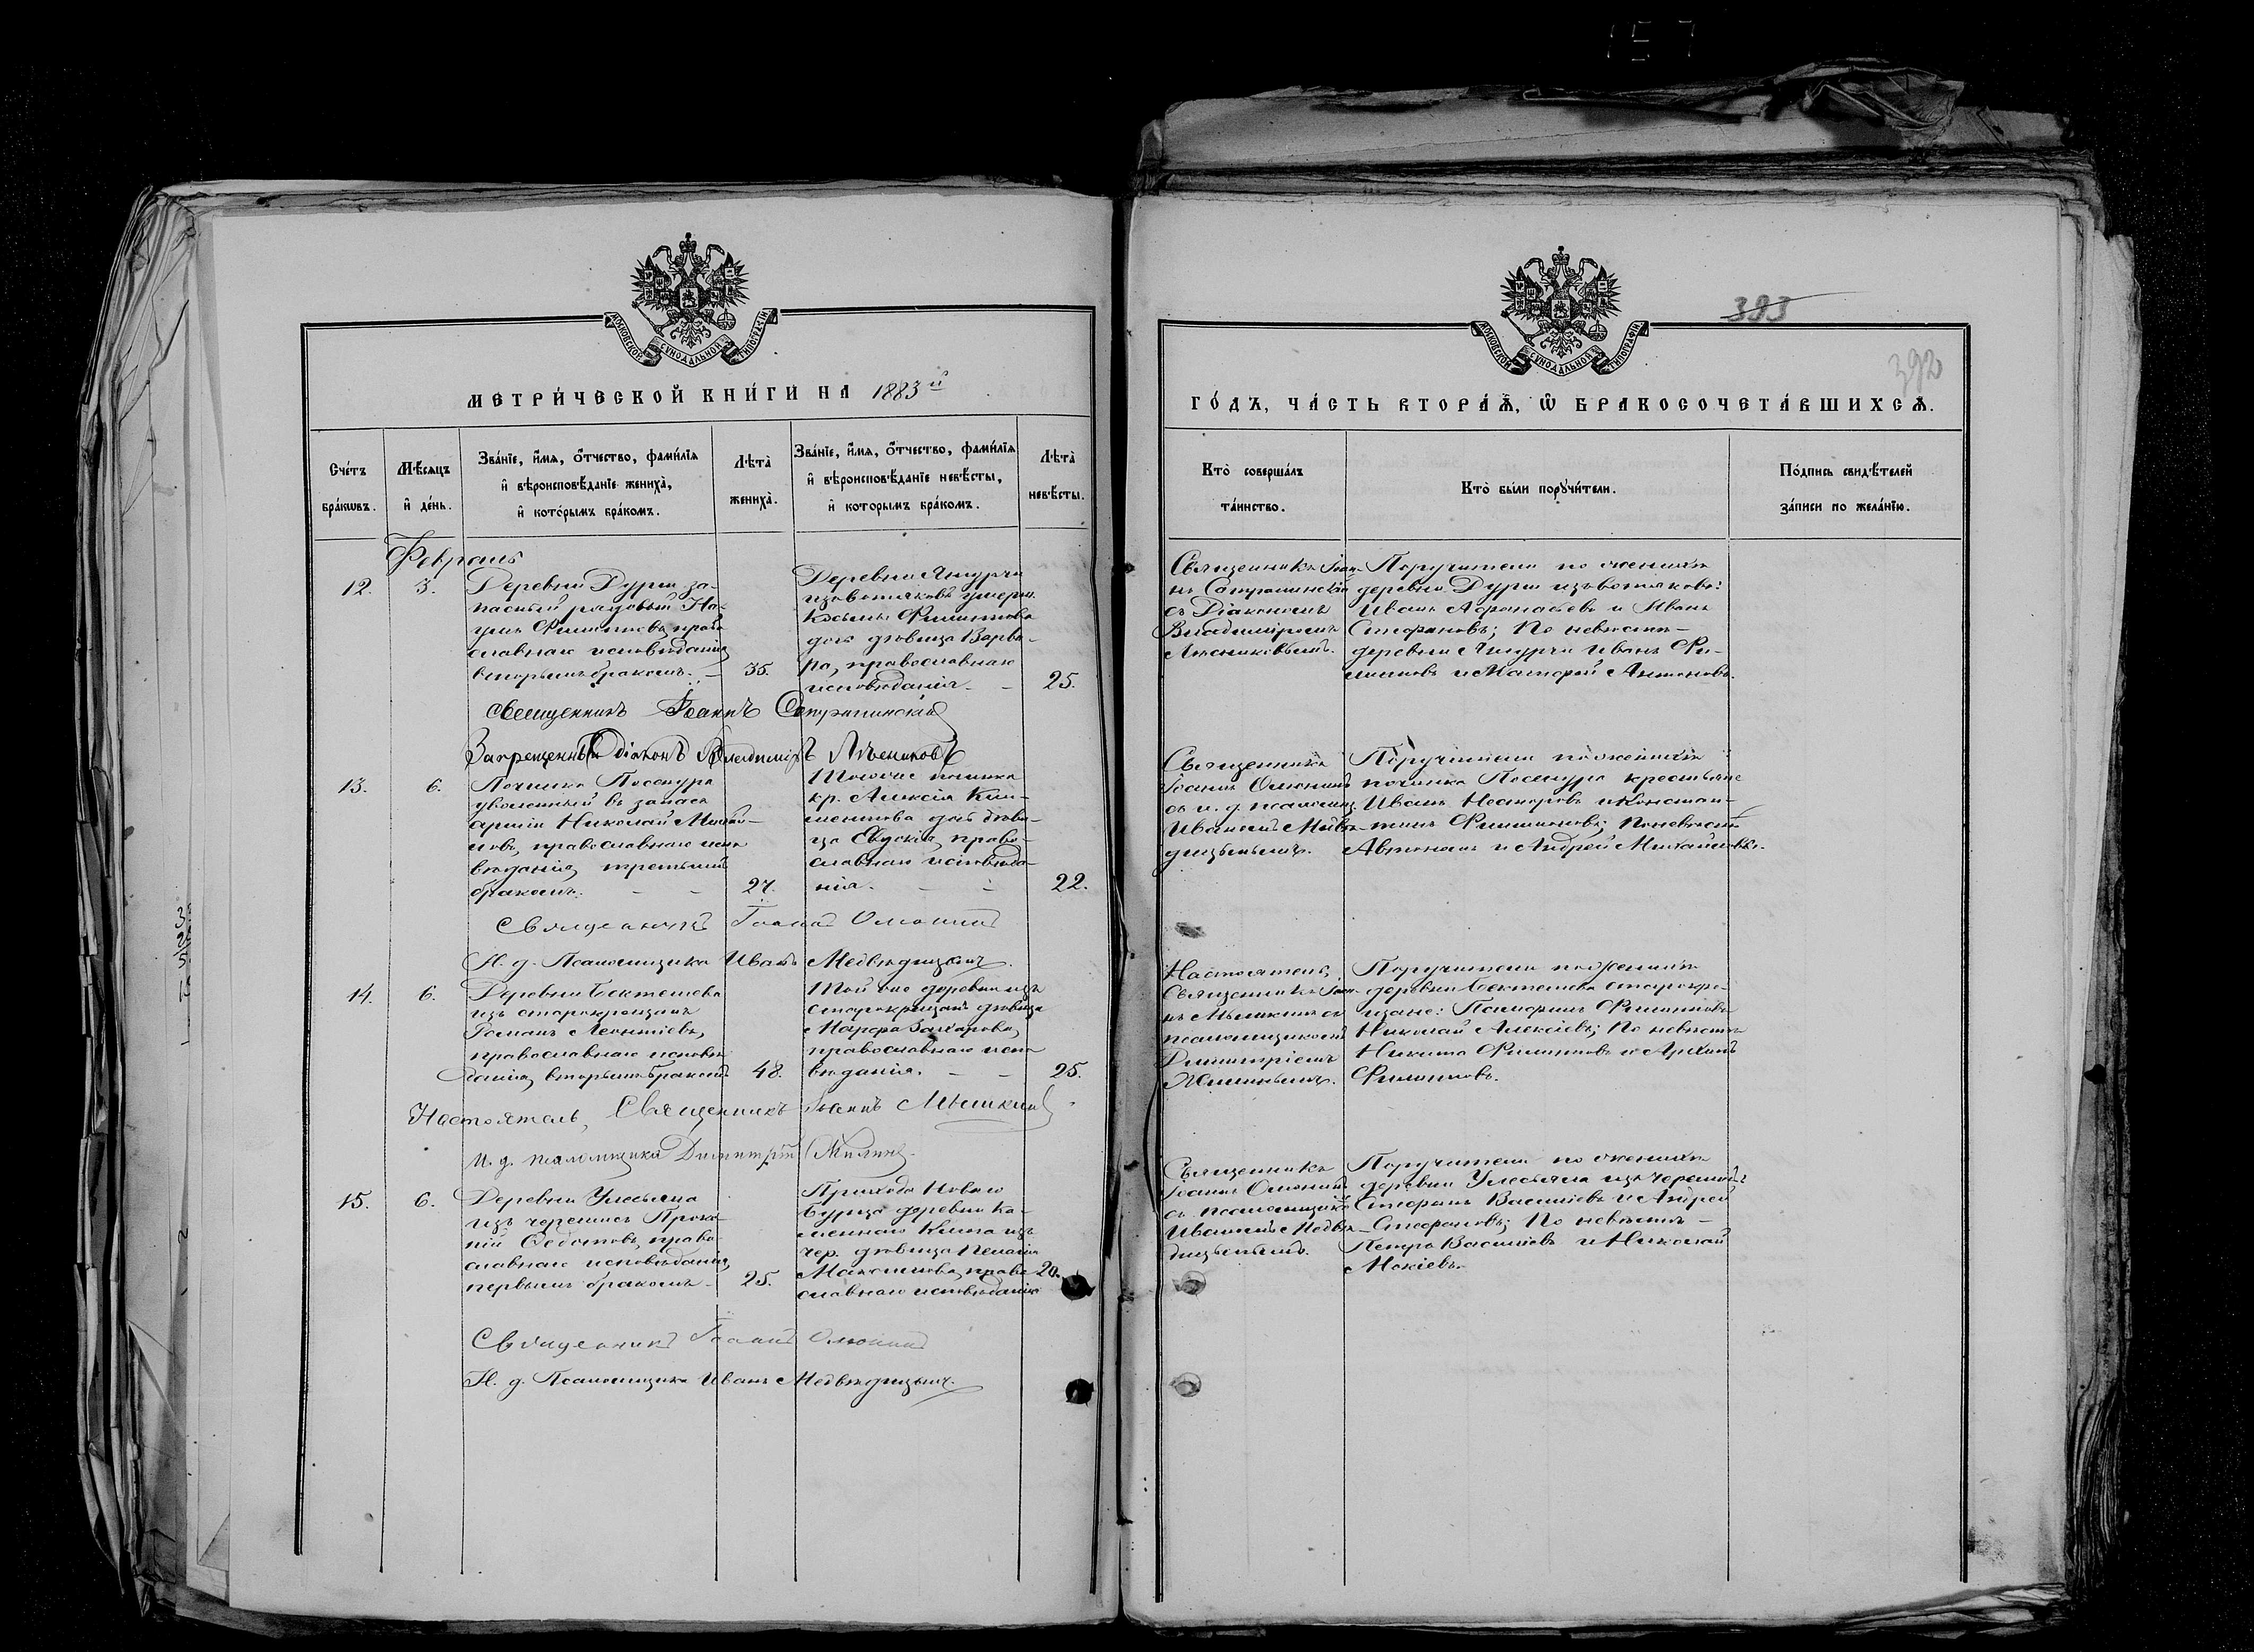 157
МОСКОВСКОЙ СѴНОДАЛЬНОЙ ТИПОГРАФІИ
МЕТРИ́ЧЕСКОЙ КНИ́ГИ НА 1883й
Сче́тъ бра́кѡвъ.
Мѣ́сяцъ и҆ де́нь.
Зва́нїе, и҆́мя, ѻ҆́тчество, фами́лїя
и҆ вѣроисповѣ́данїе жениха̀,
и҆ кото́рымъ бра́комъ.
Лѣта̀ жениха̀.
Зва́нїе, и҆́мя, ѻ҆́тчество, фами́лїя
и҆ вѣроисповѣ́данїе невѣ́сты,
и҆ которымъ бра́комъ.
Лѣта̀ невѣ́сты.
Февраль
12.
3.
Деревни Дурги за-
пасный рядовый На-
умъ Филипповъ, право
славнаго исповѣданія
вторымъ бракомъ. –
35.
Деревни Янурчи
изъ вотяковъ умерш.
Косьмы Филиппова
дочь дѣвица Варва-
ра, православнаго
исповѣданія. –
25.
Священникъ Іоаннъ Сатрапинскій
Запрещенный діаконъ Владиміръ Лѣсниковъ
13.
6.
Починка Посекура
уволенный въ запасъ
арміи Николай Михай-
ловъ, православнаго испо
вѣданія, третьимъ
бракомъ. – –
27.
Того же починка
кр. Алексія Кли-
ментова дочь дѣви-
ца Евдокія, право-
славнаго исповѣда-
нія. – –
22.
Священникъ Іоаннъ Олюнинъ
И. д. Псаломщика Иванъ Медвѣдицынъ.
14.
6.
Деревни Бектешева
изъ старокрещенъ
Романъ Леонтіевъ,
православнаго исповѣ
данія, вторымъ бракомъ
48.
Той же деревни изъ
старокрещенъ дѣвица
Марфа Захарова,
православнаго испо
вѣданія. – –
25.
Настоятель, Священникъ Іоаннъ Мышкинъ
И. д. псаломщика Димитрій Жилинъ.
15.
6.
Деревни Улесьяла
изъ черемисъ Проко-
пій Ѳедотовъ, право
славнаго исповѣданія,
первымъ бракомъ –
25.
Прихода Новаго
Бурца деревни Ка-
меннаго Ключа изъ
чер. дѣвица Пелагія
Максимова, право
славнаго исповѣданія
20.
Священникъ Іоаннъ Олюнинъ
И. д. Псаломщика Иванъ Медвѣдицынъ.
МОСКОВСКОЙ СѴНОДАЛЬНОЙ ТИПОГРАФІИ
393
392
ГО́ДЪ, ЧА́СТЬ ВТОРА́Ѧ, Ѡ҆ БРАКОСОЧЕТА́ВШИХСѦ.
Кто̀ соверша́лъ
та́инство.
Кто̀ бы́ли порꙋчи́тели.
По́дпись свидѣ́телей
за́писи по жела́нїю.
Священникъ Іоан-
нъ Сатрапинскій
съ Діакономъ
Владиміромъ
Лѣсниковымъ.
Поручители по женихѣ
деревни Дурги изъ вотяковъ:
Иванъ Аѳанасьевъ и Иванъ
Стефановъ; По невѣстѣ –
деревни Янурчи Иванъ Фи-
липповъ и Матѳей Антоновъ.
Священникъ
Іоаннъ Олюнинъ
съ и. д. псаломщ.
Иваномъ Медвѣ-
дицынымъ.
Поручители по женихѣ
починка Посекура крестьяне
Иванъ Несторовъ и Констан-
тинъ Филимоновъ; По невѣстѣ
Автономъ и Андрей Михайловы.
Настоятель,
Священникъ Іоан-
нъ Мышкинъ съ
псаломщикомъ
Димитріемъ
Жилинымъ.
Поручители по женихѣ
деревни Бектешева старокре-
щене: Памфилъ Филипповъ
Николай Алексіевъ; По невѣстѣ
Никита Филипповъ и Архипъ
Филипповъ.
Священникъ
Іоаннъ Олюнинъ
съ псаломщикомъ
Иваномъ Медвѣ-
дицынымъ.
Поручители по женихѣ
деревни Улесьяла изъ черемисъ
Стефанъ Васильевъ и Андрей
Стефановъ; По невѣстѣ –
Петръ Васильевъ и Николай
Мокіевъ.